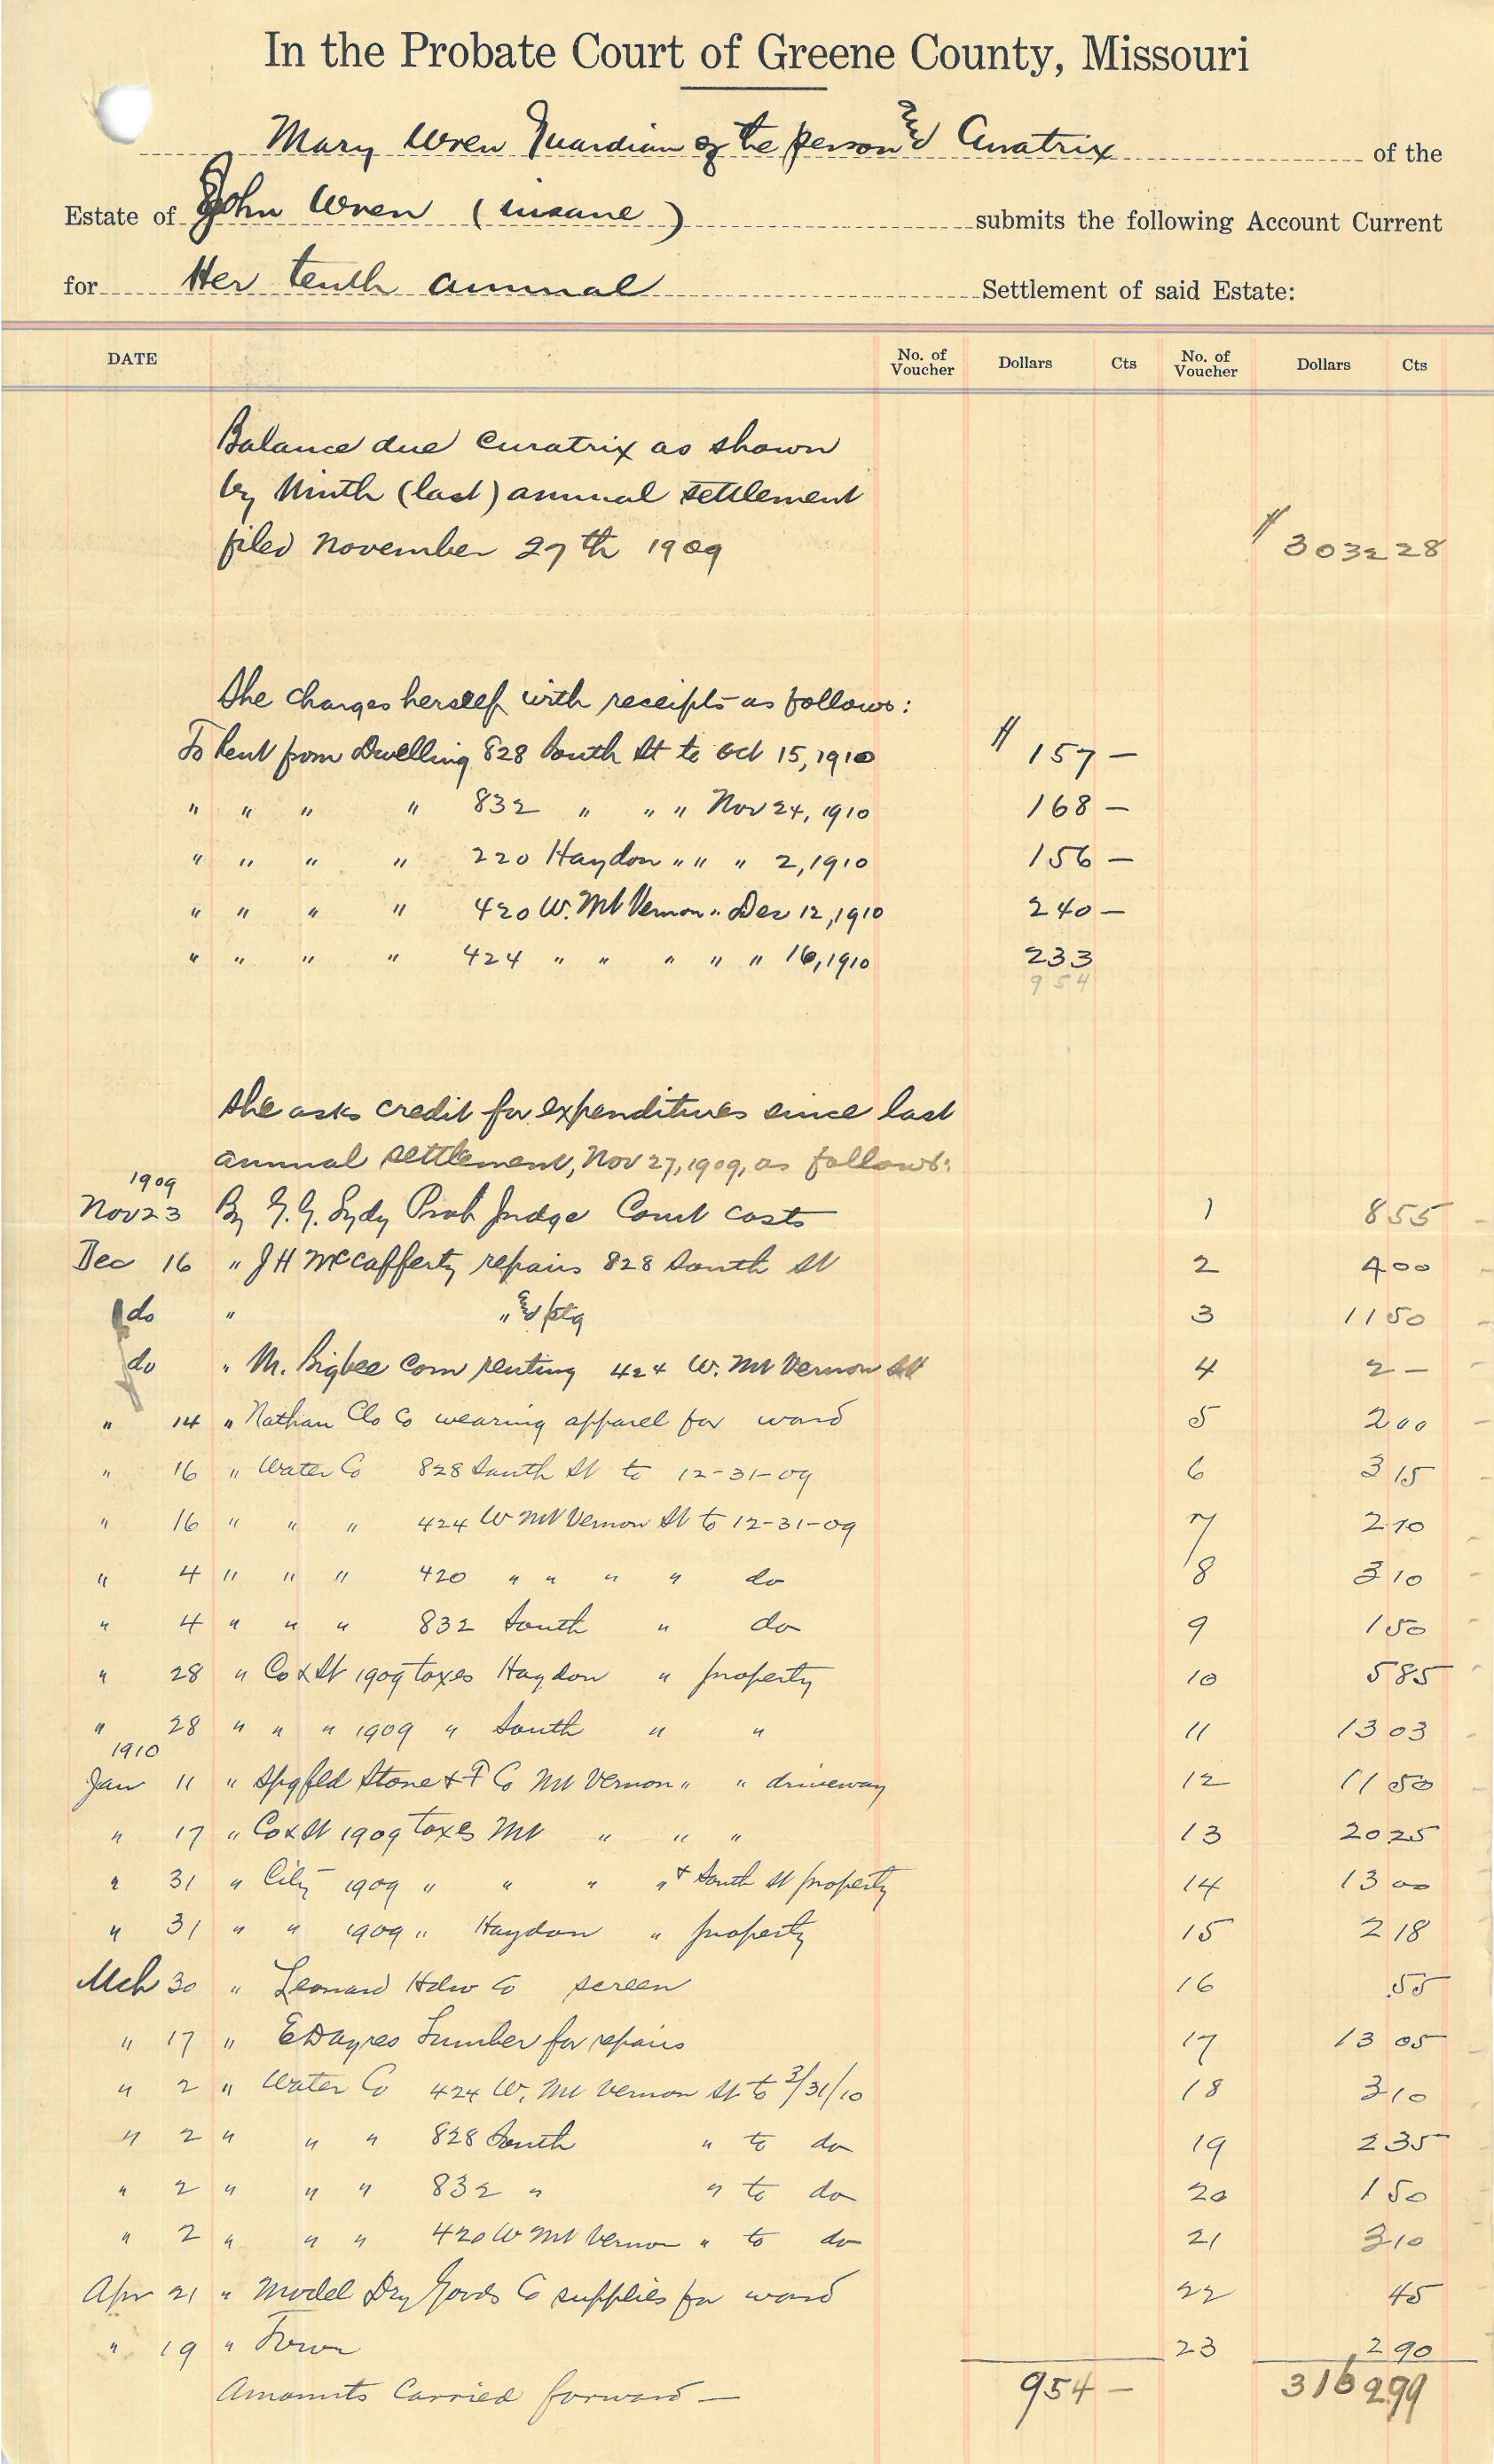 In the Probate Court of Greene County, Missouri
Mary Wren Guardian of the person and Curatrix of the
Estate of John Wren (insane) submits the following Account Current
for Her tenth annual Settlement of said Estate:
DATE No. of Voucher Dollars Cts No. of Voucher Dollars Cts
Balance due Curatrix as shown
by Ninth (last) annual settlement
filed November 27th 1909 $ 3032 28
She charges herself with receipts as follows:
To Rent from Dwelling 828 South St to Oct 15, 1910 $ 157 —
" " " " 832 " " " Nov 24, 1910 168 —
" " " " 220 Haydon " " " 2, 1910 156 —
" " " " 420 W. Mt Vernon " Dec 12, 1910 240 —
" " " " 424 " " " " " 16, 1910 233
954
She asks credit for expenditures since last
annual settlement, Nov 27, 1909, as follows:
1909
Nov 23 By G. G. Lydy Prob Judge Court costs 1 8 55
Dec 16 " J H McCafferty repairs 828 South St 2 4 00
do " " & ptg 3 11 50
do " M. Bigbee Com renting 424 W. Mt Vernon St 4 2 —
" 14 " Nathan Clo Co wearing apparel for ward 5 2 00
" 16 " Water Co 828 South St to 12-31-09 6 3 15
" 16 " " " 424 W Mt Vernon St to 12-31-09 7 2 10
" 4 " " " 420 " " " " do 8 3 10
" 4 " " " 832 South " do 9 1 50
" 28 " Co & St 1909 taxes Haydon " property 10 5 85
" 28 " " " 1909 " South " " 11 13 03
1910
Jan 11 " Spgfld Stone & F Co Mt Vernon " " driveway 12 11 50
" 17 " Co & St 1909 taxes Mt " " " 13 20 25
" 31 " City 1909 " " " " & South St property 14 13 00
" 31 " " 1909 " Haydon " property 15 2 18
Mch 30 " Leonard Hdw Co screen 16 .55
" 17 " E D Ayres Lumber for repairs 17 13 05
" 2 " Water Co 424 W. Mt Vernon St to 3/31/10 18 3 10
" 2 " " " 828 South " to do 19 2 35
" 2 " " " 832 " " to do 20 1 50
" 2 " " " 420 W Mt Vernon " to do 21 3 10
Apr 21 " Model Dry Goods Co supplies for ward 22 45
" 19 " 23 2 90
Amounts Carried forward — 954 — 3162 99